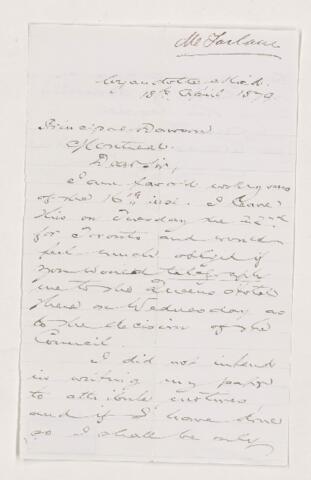 McFarlane
Wyandotte Mich.
18th April 1879
Principal Dawson
Montreal
Dear Sir,
I am favor'd with yours
of the 16th inst. I leave
this on Tuesday the 22nd
for Toronto and would
feel much obliged if
you would telegraph
me to the Queens Hotel
there on Wednesday as
to the decision of the
Council.
I did not intend
in writing my paper
to attribute
and if I have done
so I shall be only